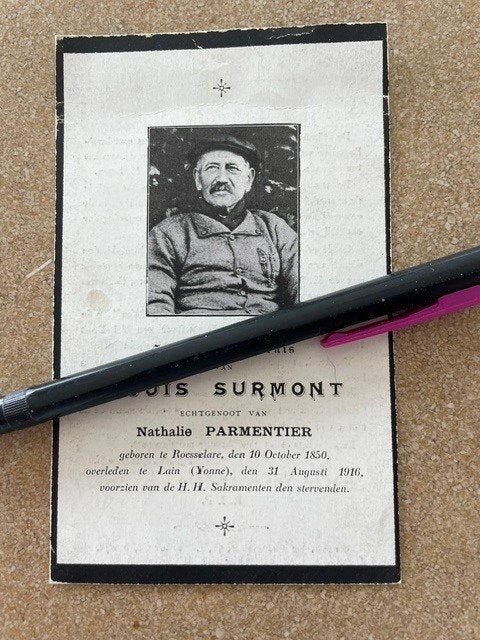 LOUIS SURMONT
ECHTGENOOT VAN
Nathalie PARMENTIER
geboren te Roesselare, den 10 October 1850,
overleden te Lain (Yonne), den 31 Augusti 1916,
voorzien van de H. H. Sakramenten den stervenden.